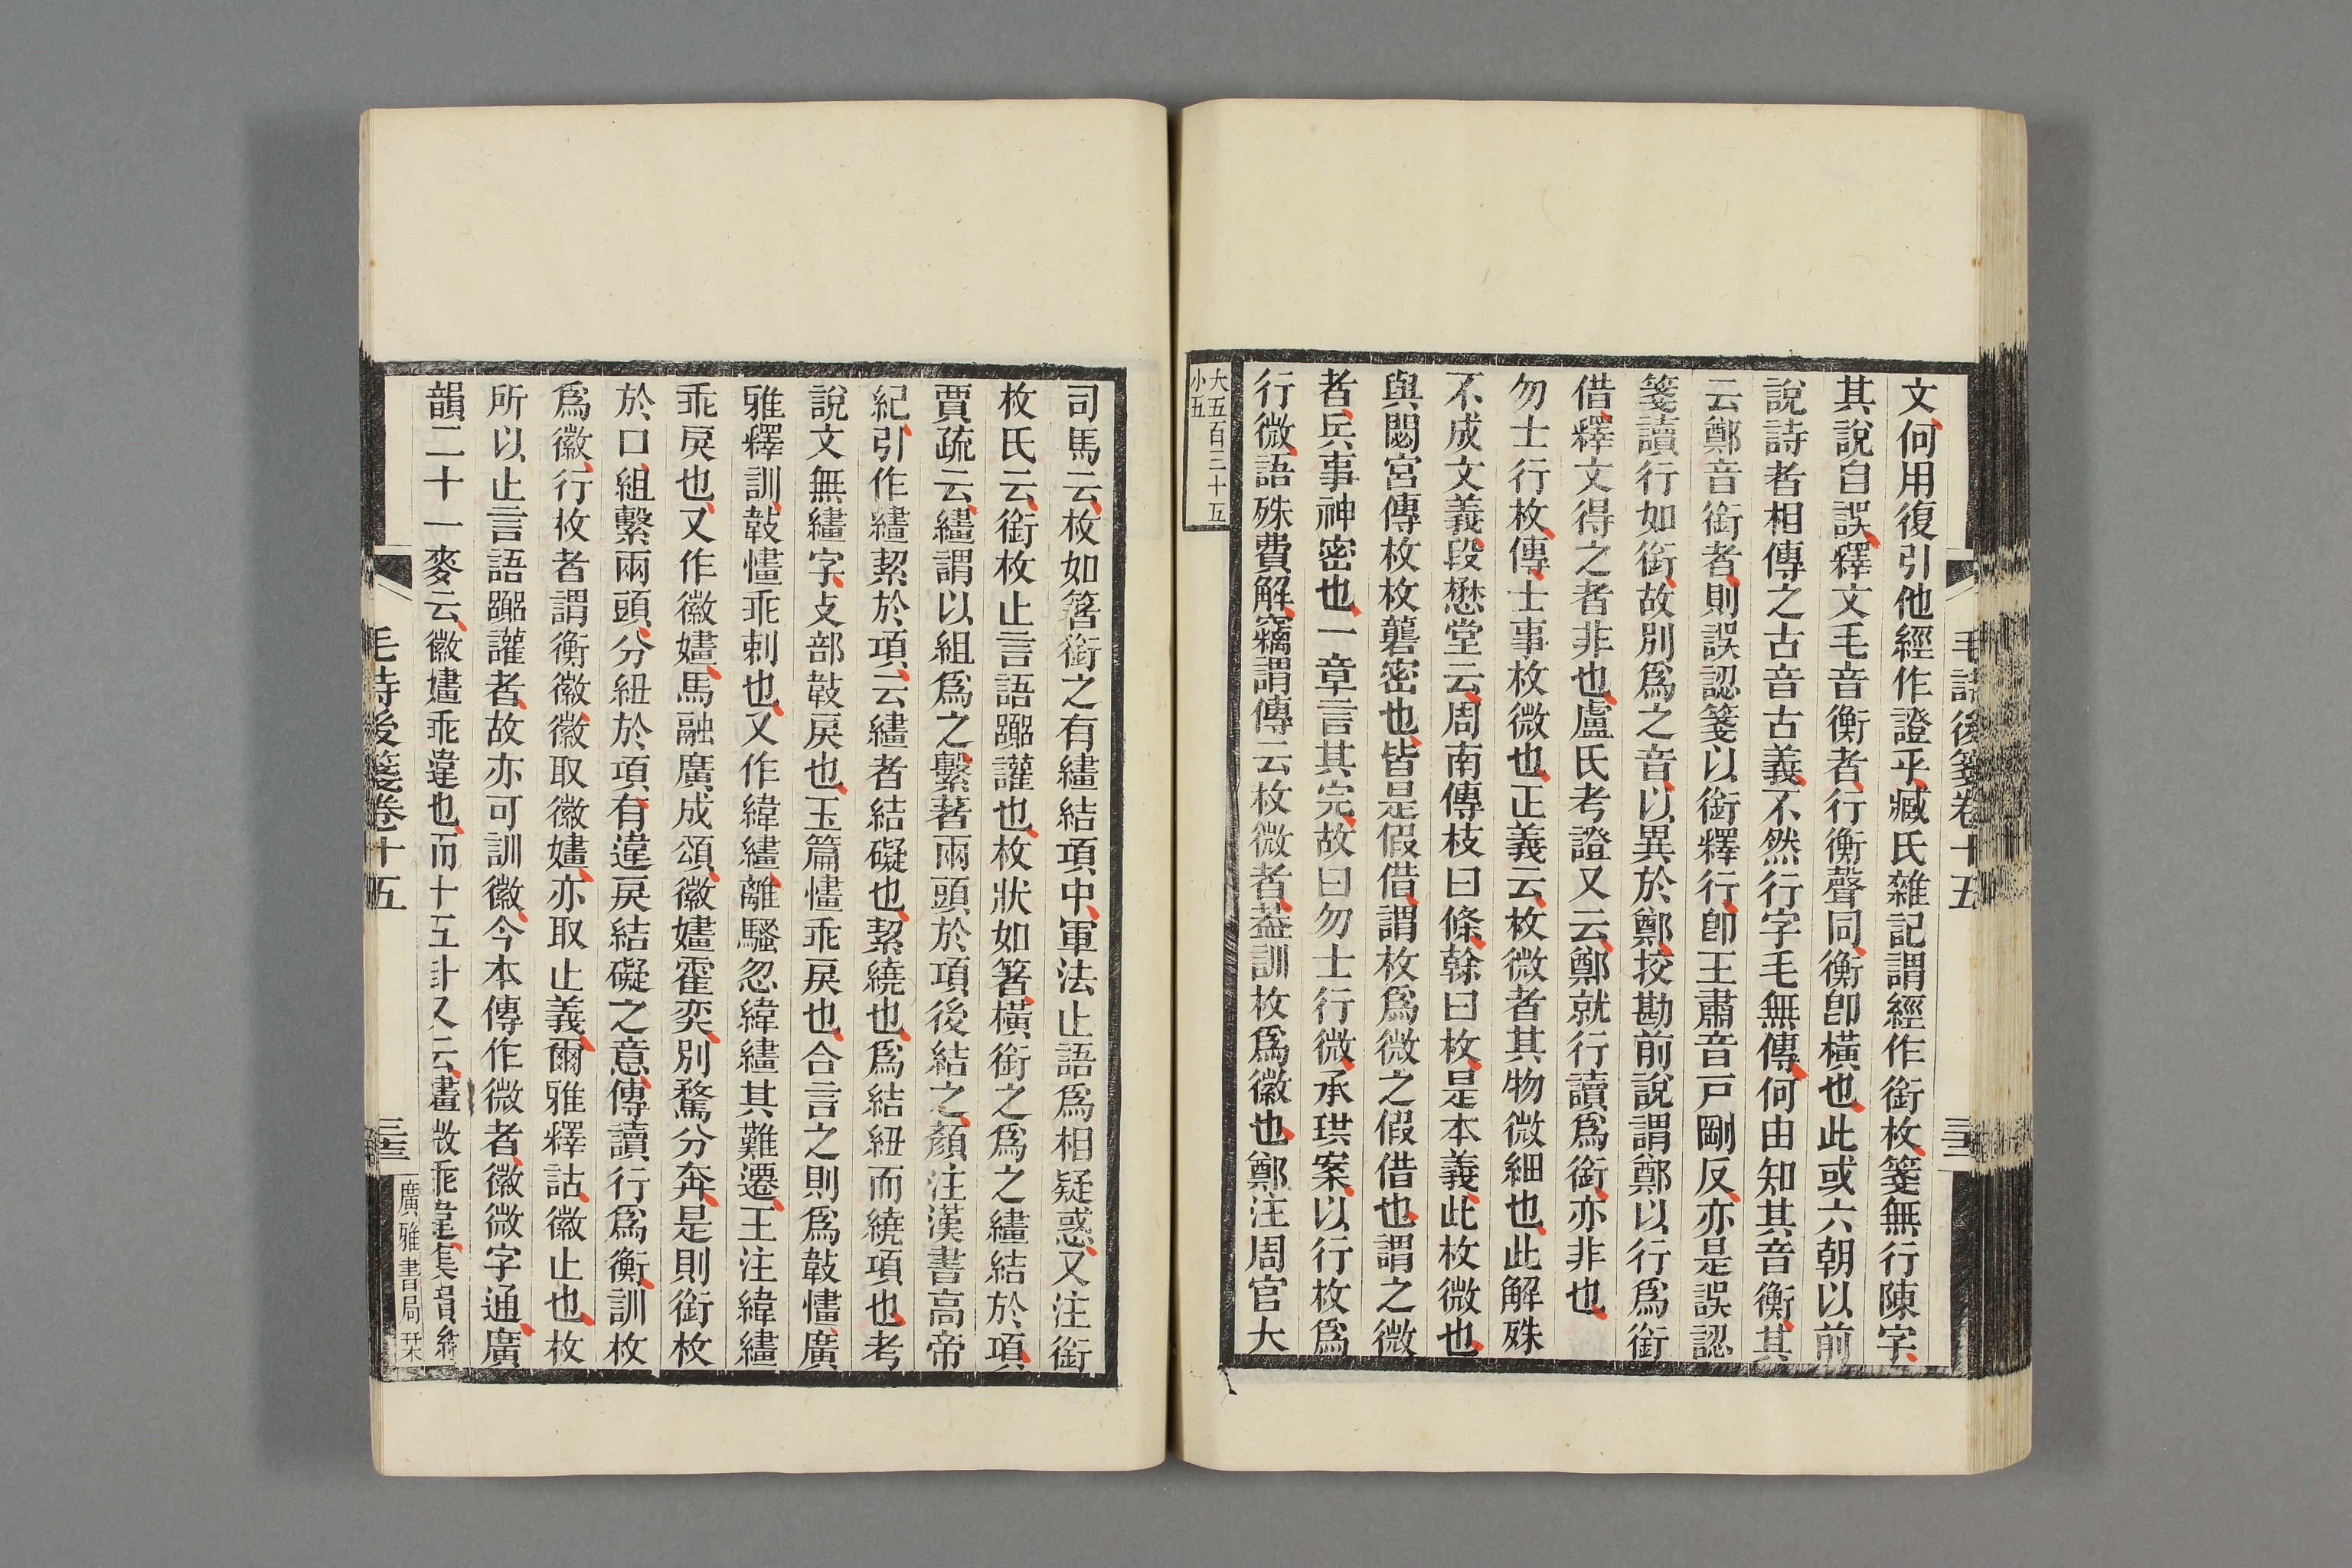 毛詩後箋卷十五
三十二
文何用復引他經作證乎臧氏雜記謂經作銜枚箋無行陳字
其說自誤釋文毛音衡者行衡聲同衡卽橫也此或六朝以前
說詩者相傳之古音古義不然行字毛無傳何由知其音衡其
云鄭音銜者則誤認箋以銜釋行卽王肅音戸剛反亦是誤認
箋讀行如銜故別爲之音以異於鄭挍勘前說謂鄭以行爲銜
借釋文得之者非也盧氏考證又云鄭就行讀爲銜亦非也
勿士行枚傳士事枚微也正義云枚微者其物微細也此解殊
不成文義段懋堂云周南傳枝曰條榦曰枚是本義此枚微也
與閟宮傳枚枚礱密也皆是假借謂枚爲微之假借也謂之微
者兵事神密也一章言其完故曰勿士行微承珙案以行枚爲
行微語殊費解竊謂傳云枚微者葢訓枚爲徽也鄭注周官大
大五百三十五
小五
司馬云枚如箸銜之有繣結項中軍法止語爲相疑惑又注銜
枚氏云銜枚止言語躢讙也枚狀如箸橫銜之爲之繣結於項
賈疏云繣謂以組爲之繫著兩頭於項後結之顏注漢書高帝
紀引作繣絜於項云繣者結礙也絜繞也爲結紐而繞項也考
說文無繣字攴部㪏戾也玉篇㦎乖戾也合言之則爲㪏㦎廣
雅釋訓㪏㦎乖剌也又作緯繣離騷忽緯繣其難遷王注緯繣
乖戾也又作徽嫿馬融廣成頌徽嫿霍奕別騖分奔是則銜枚
於口組繫兩頭分紐於項有違戾結礙之意傳讀行爲衡訓枚
爲徽行枚者謂衡徽徽取徽嫿亦取止義爾雅釋詁徽止也枚
所以止言語躢讙者故亦可訓徽今本傳作微者徽微字通廣
韻二十一麥云徽嫿乖違也而十五卦又云
毛詩後箋卷十五
三十三
廣雅書局栞